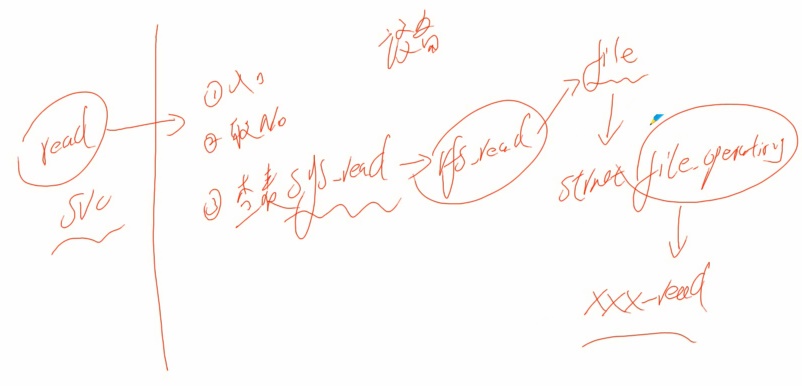 设备
read
svc
①入口
②取No
③查表 sys_read
vfs_read
file
struct file_operations
xxx_read